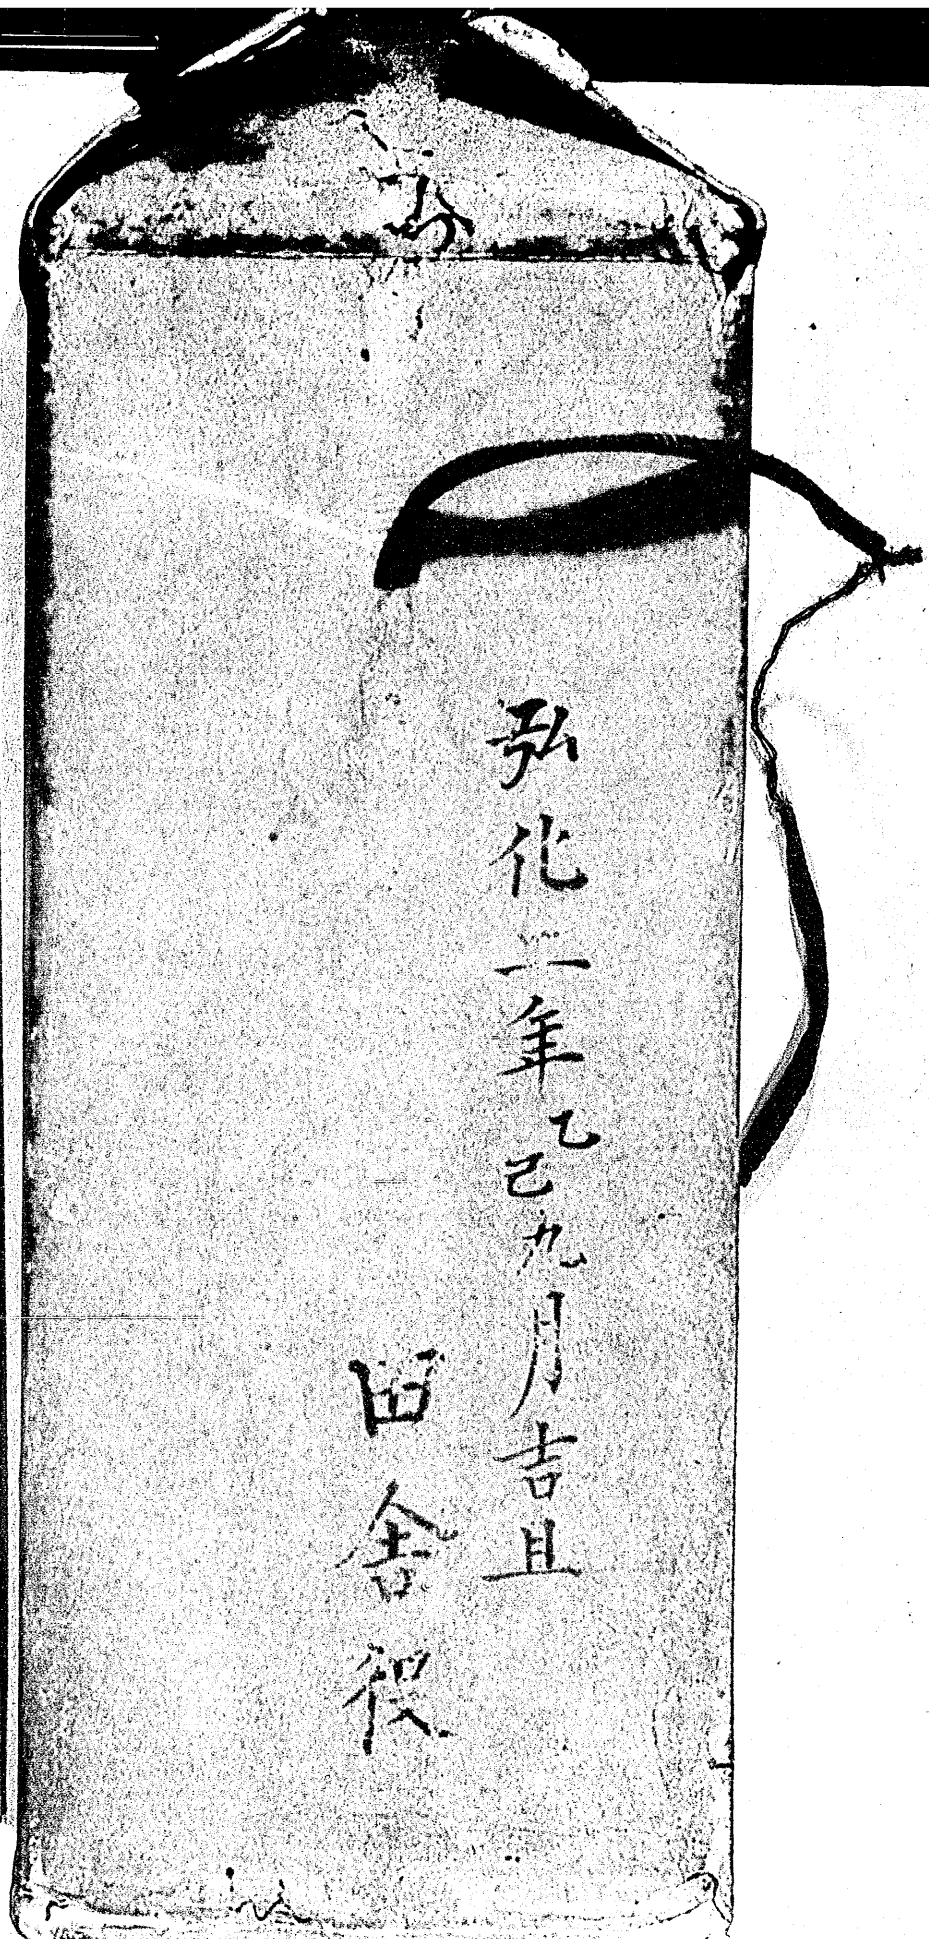 弘化二年乙巳九月吉旦
田舎役